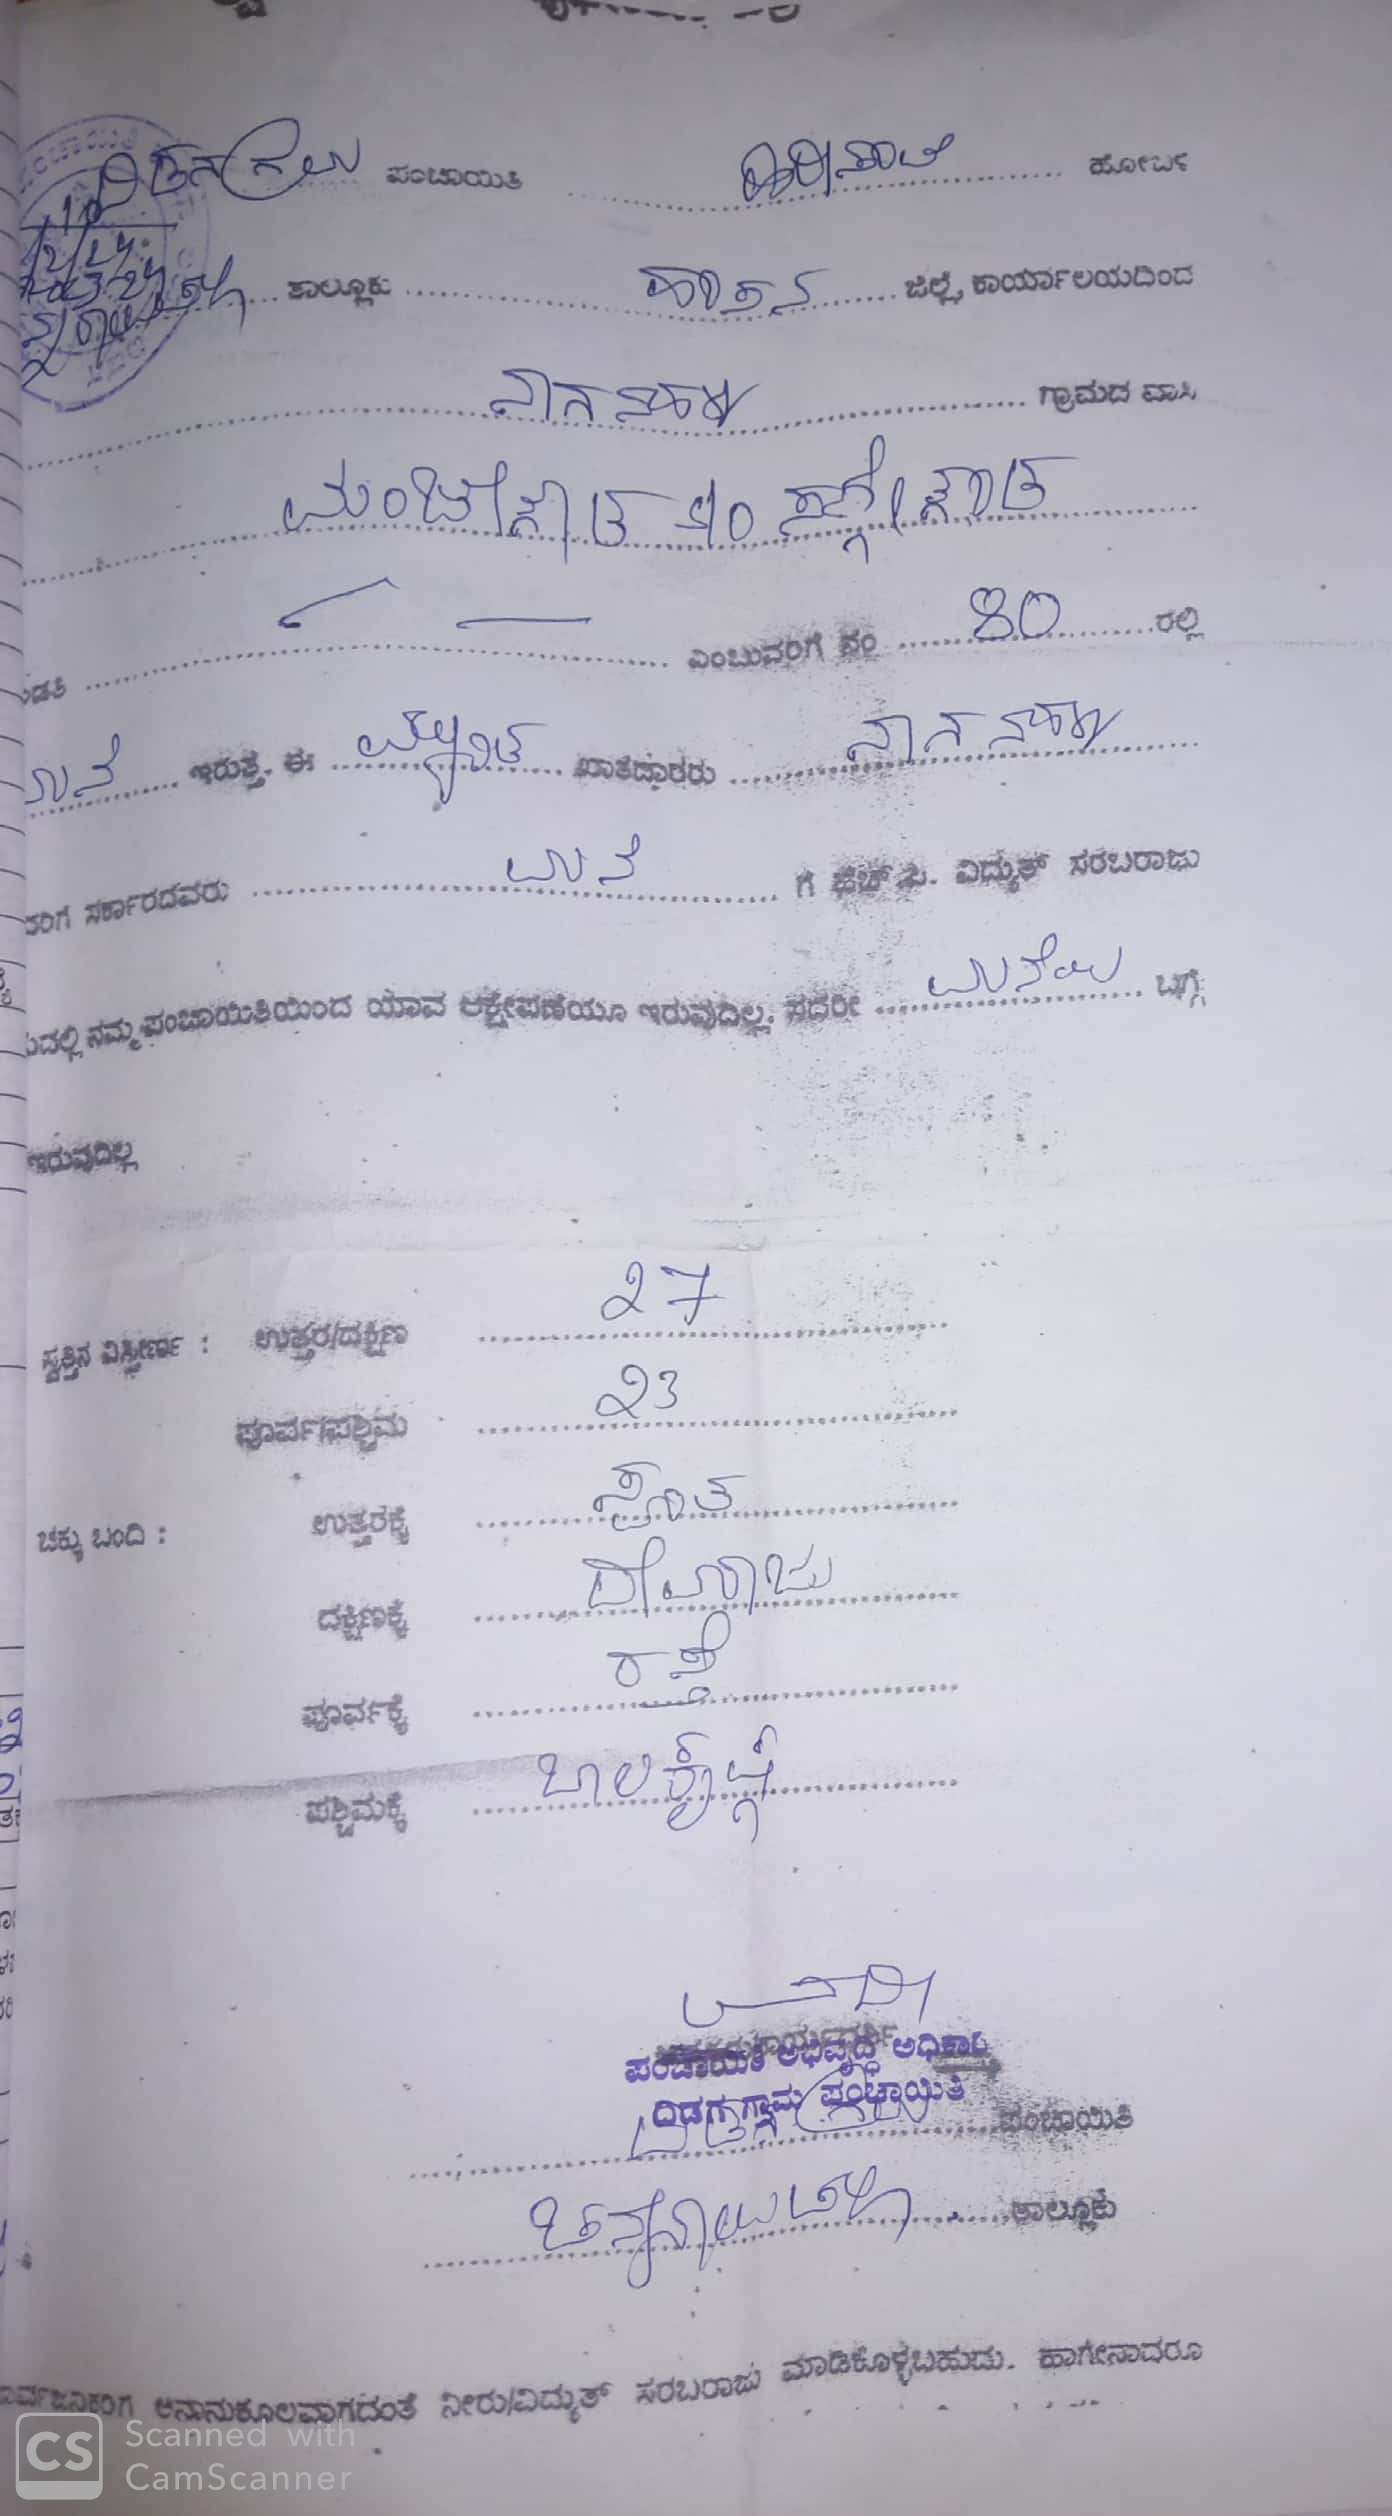 ಪಂಚಾಯಿತಿ ಹೋಬಳಿ
ತಾಲ್ಲೂಕು ಹಾಸನ ಜಿಲ್ಲೆ, ಕಾರ್ಯಾಲಯದಿಂದ
ನಾಗನಹಳ್ಳಿ ಗ್ರಾಮದ ವಾಸಿ
ಮಂಜೇಗೌಡ ಬಿನ್ ಸಣ್ಣೇಗೌಡ
ಎಂಬುವರಿಗೆ ನಂ 40 ರಲ್ಲಿ
ಮನೆ ಇರುತ್ತೆ. ಈ ಖಾತೆದಾರರು ನಾಗನಹಳ್ಳಿ
ಸರ್ಕಾರದವರು ಮನೆ ಗೆ ಹೆಚ್.ಪಿ. ವಿದ್ಯುತ್ ಸರಬರಾಜು
ನಮ್ಮ ಪಂಚಾಯಿತಿಯಿಂದ ಯಾವ ಆಕ್ಷೇಪಣೆಯೂ ಇರುವುದಿಲ್ಲ. ಸದರೀ ಮನೆಯ ಬಗ್ಗೆ
ಇರುವುದಿಲ್ಲ
ಸ್ವತ್ತಿನ ವಿಸ್ತೀರ್ಣ : ಉತ್ತರ/ದಕ್ಷಿಣ 27
ಪೂರ್ವ/ಪಶ್ಚಿಮ 23
ಚಕ್ಕು ಬಂದಿ : ಉತ್ತರಕ್ಕೆ ಸ್ವಂತ
ದಕ್ಷಿಣಕ್ಕೆ ದೇವರಾಜು
ಪೂರ್ವಕ್ಕೆ ರಸ್ತೆ
ಪಶ್ಚಿಮಕ್ಕೆ ಬಾಲಕೃಷ್ಣ
ಪಂಚಾಯಿತಿ ಅಭಿವೃದ್ಧಿ ಅಧಿಕಾರಿ
ದಿಡಗ ಗ್ರಾಮ ಪಂಚಾಯಿತಿ
ಪಂಚಾಯಿತಿ
ಚನ್ನರಾಯಪಟ್ಟಣ ತಾಲ್ಲೂಕು
ಅನಾನುಕೂಲವಾಗದಂತೆ ನೀರು/ವಿದ್ಯುತ್ ಸರಬರಾಜು ಮಾಡಿಕೊಳ್ಳಬಹುದು. ಹಾಗೇನಾದರೂ
CS Scanned with
CamScanner